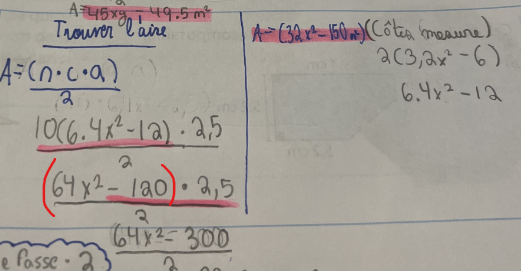 A=45xy - 49.5m²
Trouver l'aire
A=(n·c·a)
2
10(6.4x²-12)·2,5
2
(64x²-120)·2,5
2
64x²-300
2
e Passe · 2
A=(32x²-150m²)(Côtés mesure)
2(3,2x²-6)
6.4x²-12